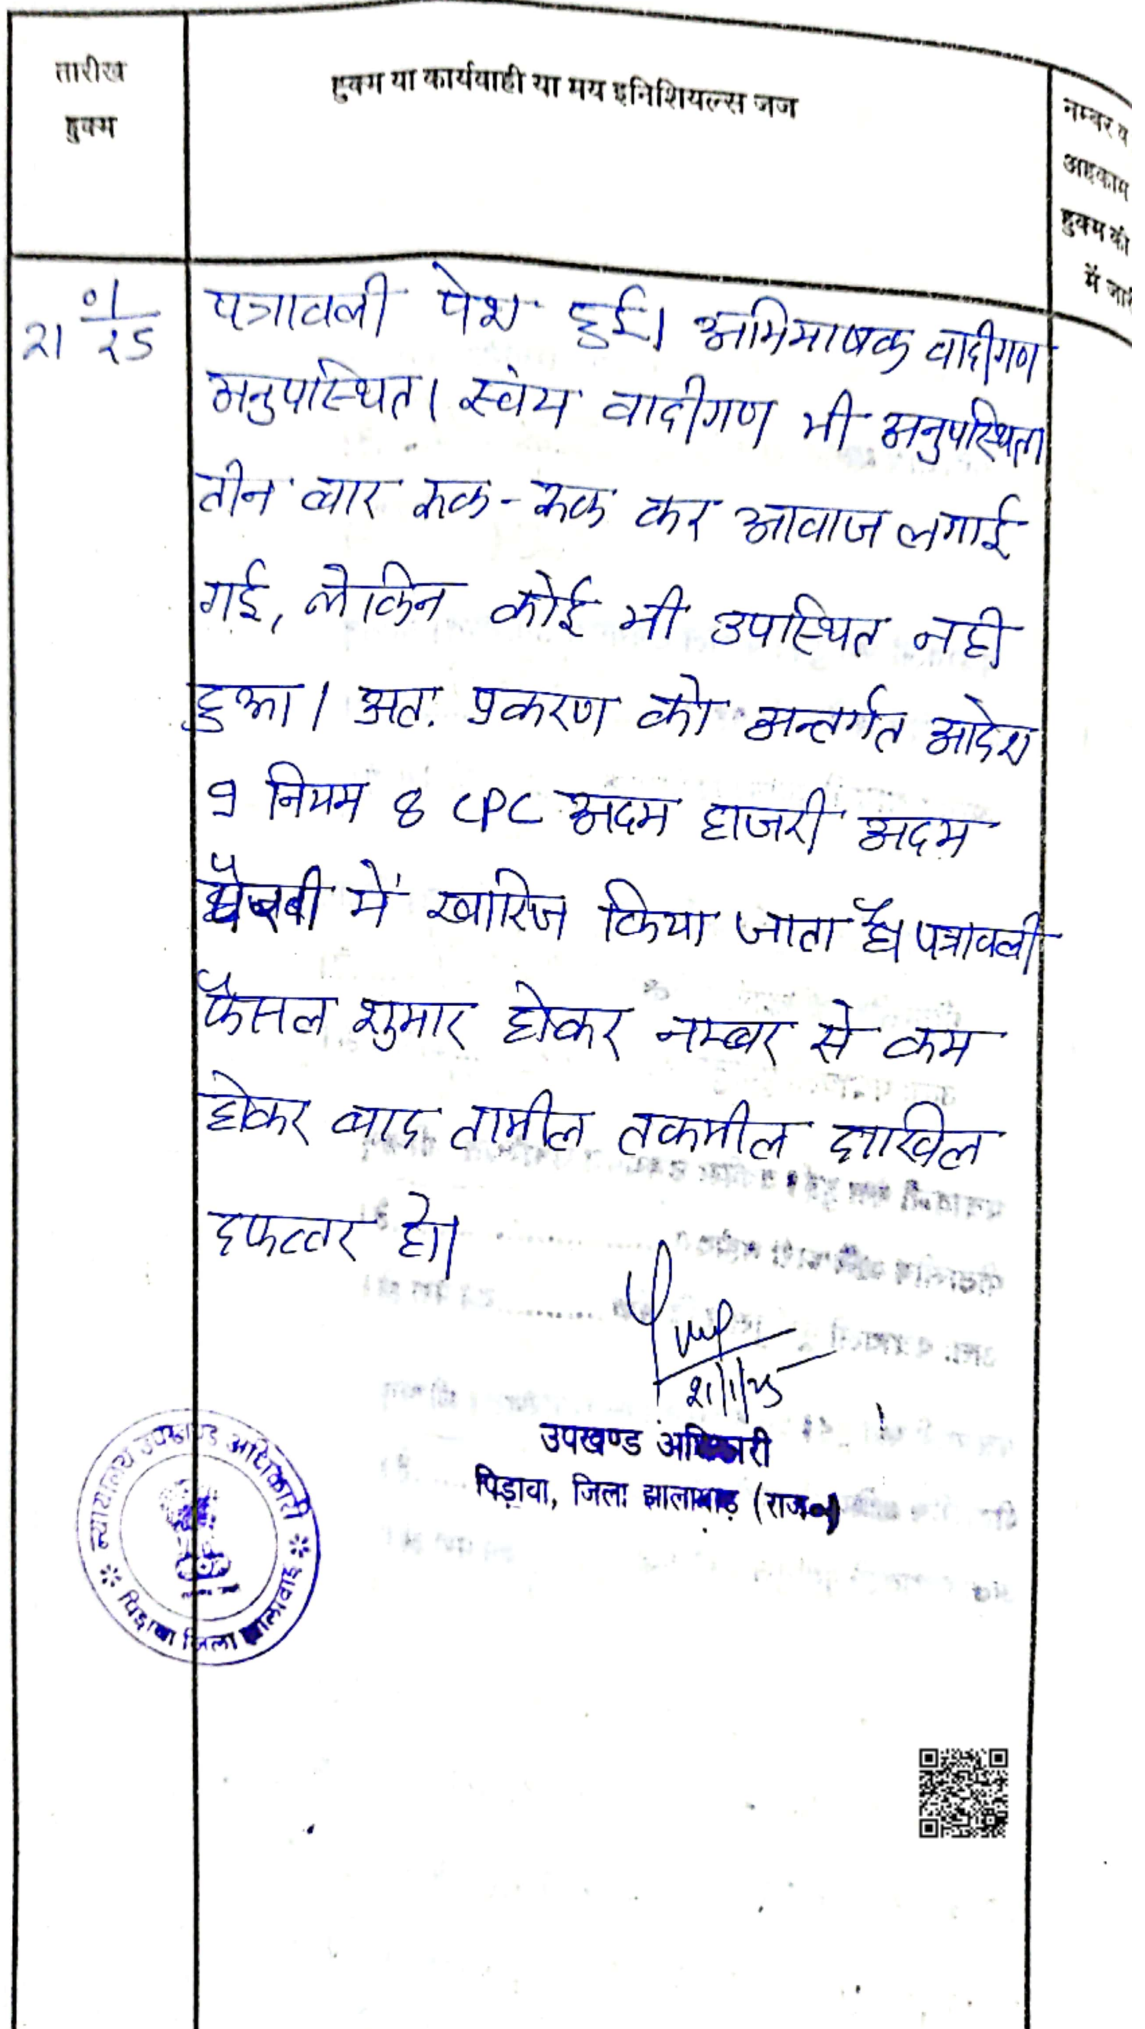 तारीख
हुक्म
हुक्म या कार्यवाही या मय इनिशियल्स जज
नम्बर व
अहकाम
हुक्म की
में जारी
21 01/25
पत्रावली पेश हुई। अभिभाषक वादीगण
अनुपस्थित। स्वंय वादीगण भी अनुपस्थित
तीन बार रूक-रूक कर आवाज लगाई
गई, लेकिन कोई भी उपस्थित नही
हुआ। अतः प्रकरण को अन्तर्गत आदेश
9 नियम 8 CPC अदम हाजरी अदम
पैरवी में खारिज किया जाता है। पत्रावली
फैसल शुमार होकर नम्बर से कम
होकर बाद तामील तकमील दाखिल
दफ्तर हो।
21/1/25
उपखण्ड अधिकारी
पिड़ावा, जिला झालावाड़ (राज०)
न्यायालय उपखण्ड अधिकारी
पिड़ावा जिला झालावाड़